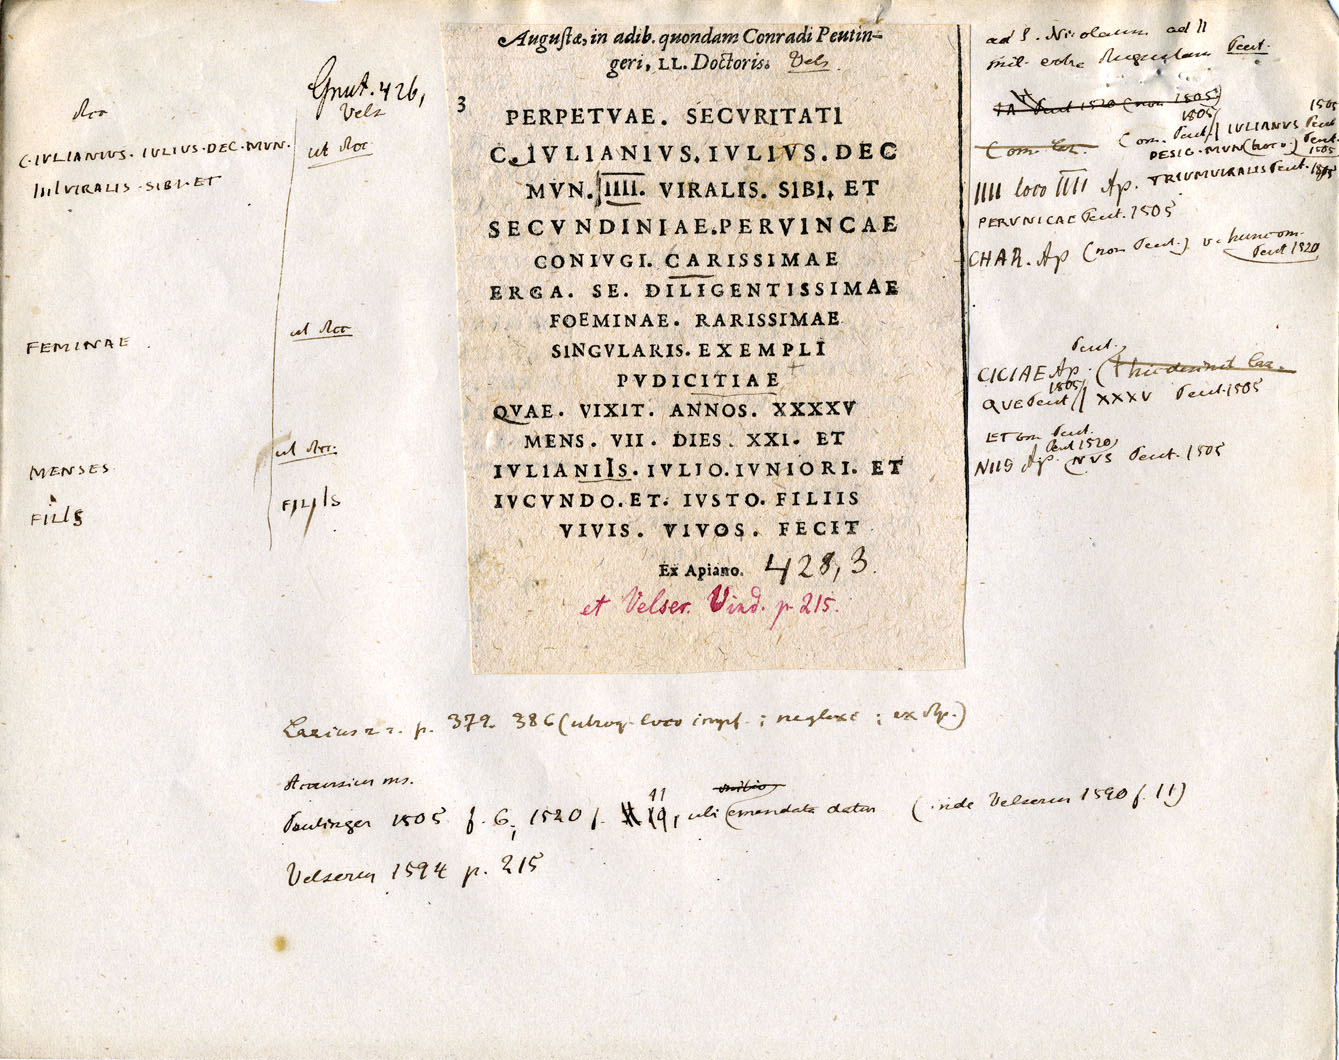 Augustæ, in adib. quondam Conradi Peutin-
geri, LL. Doctoris. Vels
3
PERPETVAE. SECVRITATI
C. IVLIANIVS. IVLIVS. DEC
MVN. IIII. VIRALIS. SIBI. ET
SECVNDINIAE. PERVINCAE
CONIVGI. CARISSIMAE
ERGA. SE. DILIGENTISSIMAE
FOEMINAE. RARISSIMAE
SINGVLARIS. EXEMPLI
PVDICITIAE
QVAE. VIXIT. ANNOS. XXXXV
MENS. VII. DIES. XXI. ET
IVLIANIIS. IVLIO. IVNIORI. ET
IVCVNDO. ET. IVSTO. FILIIS
VIVIS. VIVOS. FECIT
Ex Apiano. 428,3.
et Velser. Vind. p. 215.
Grut. 426,
Vels
Acc
C. IVLIANIUS. IULIUS. DEC. MVN.
IIIIVIRALIS. SIBI. ET
ut Acc
FEMINAE
ut Acc
MENSES
ut Acc.
FILIIS
FILIIS
ad S. Nicolaum ad II
mil. extra Augustam Peut.
1505
Com. Peut. // IULIANUS Peut
1505
DESIG. MUN Peut.
1505
IIII loco IIII Ap. TRIUMVIRALIS Peut. 1505
PERUNICAE Peut. 1505
CHAR. Ap (non Peut.)
Peut 1520
Peut.
CICIAE Ap.
1505
QUE Peut // XXXV Peut. 1505
ET om Peut.
Peut 1520
NIIS Ap. NVS Peut. 1505
Lazius r. r. p. 379. 386 (utroq. loco impf.; neglexi; ex Ap.)
Accursius ms.
11
Peutinger 1505 f. 6; 1520 f. 19, ubi emendata datur (inde Velserus 1590 f. 11)
Velserus 1594 p. 215